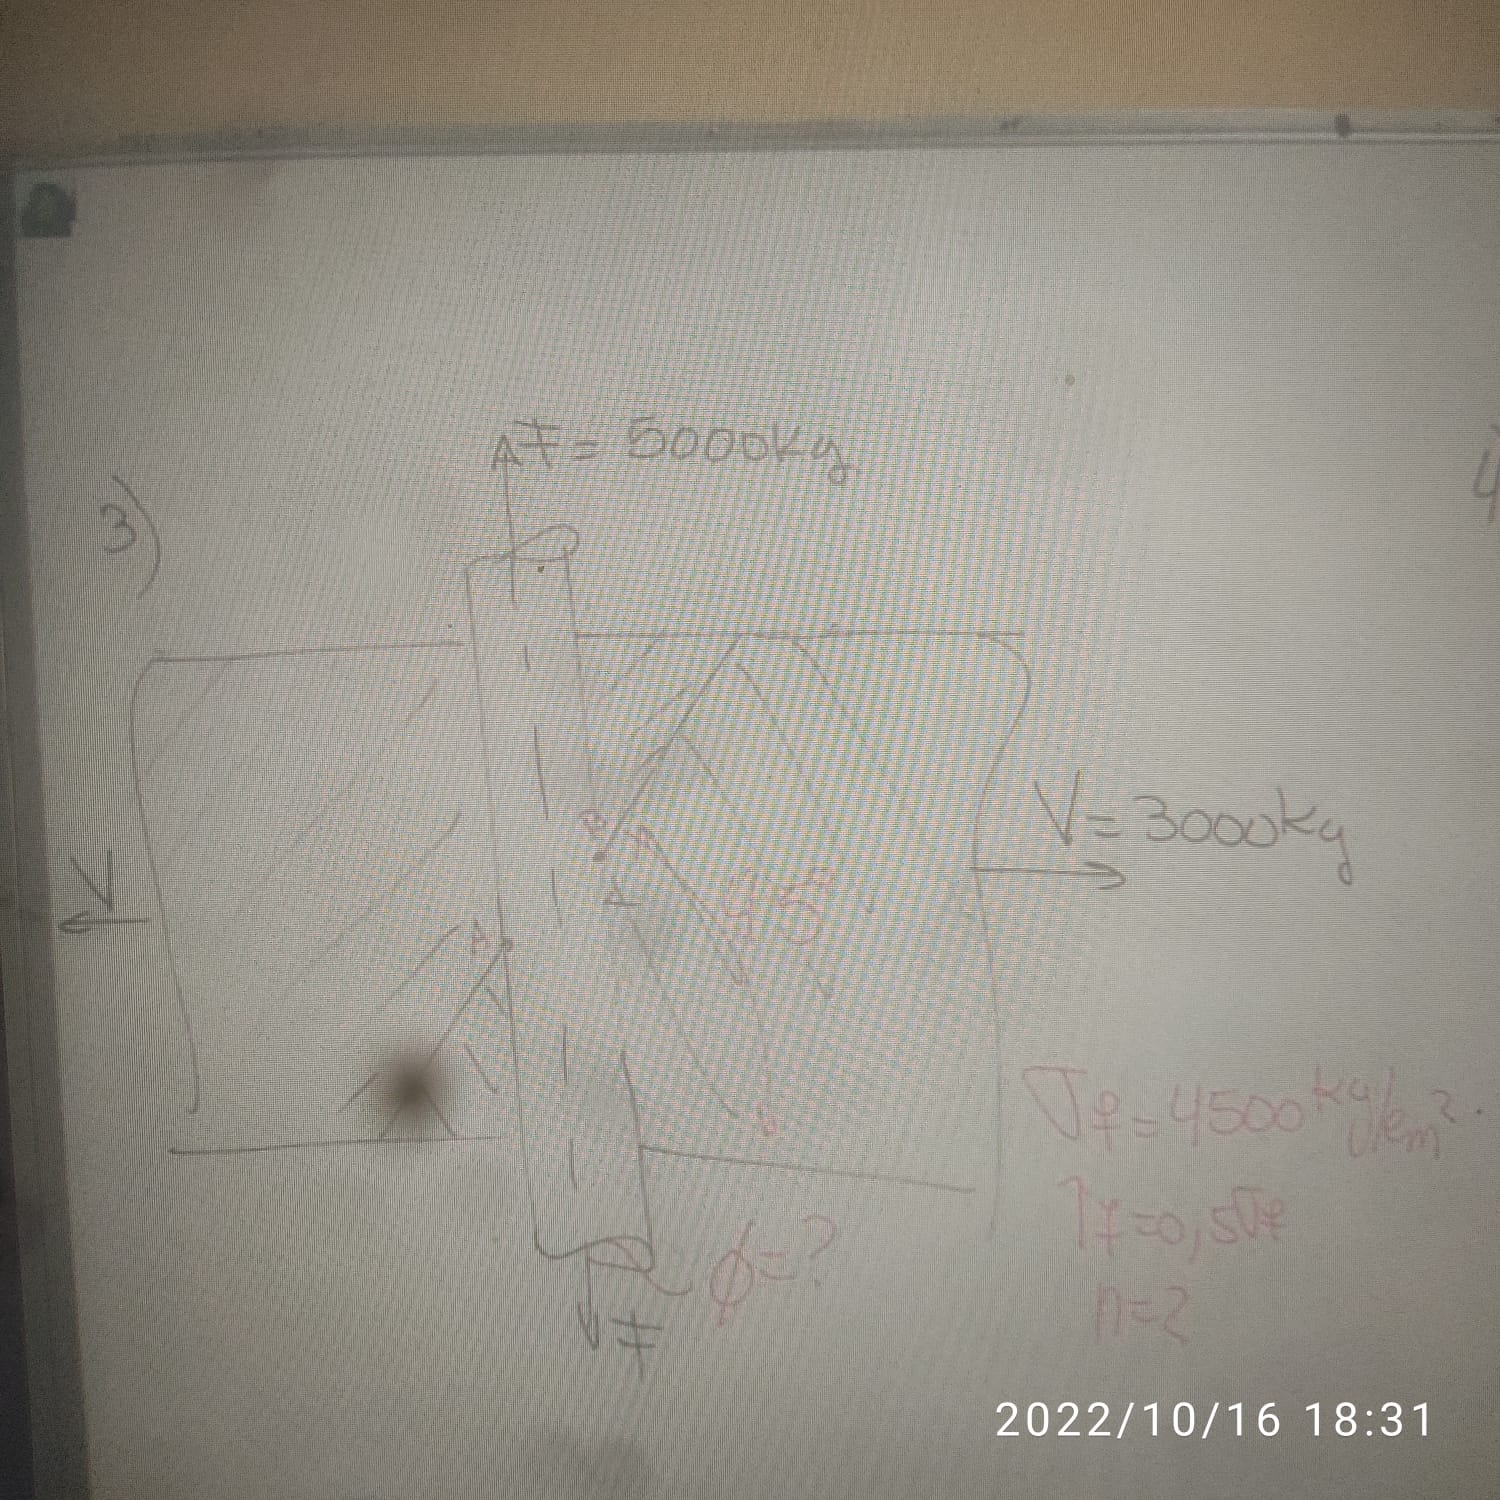 F = 5000kg
3)
V = 3000kg
V
B
A
45°
A
σf = 4500 kg/cm².
τf = 0,5σf
n = 2
φ = ?
F
2022/10/16 18:31